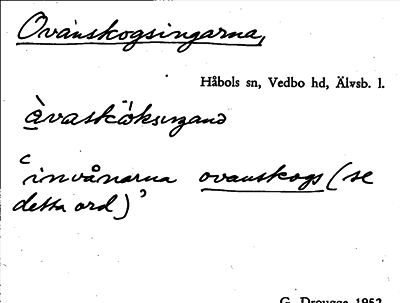 Ovanskogsingarna,
Håbols sn, Vedbo hd, Älvsb. l.
invånarna ovanskogs (se
detta ord)'
G. Drougge 1952